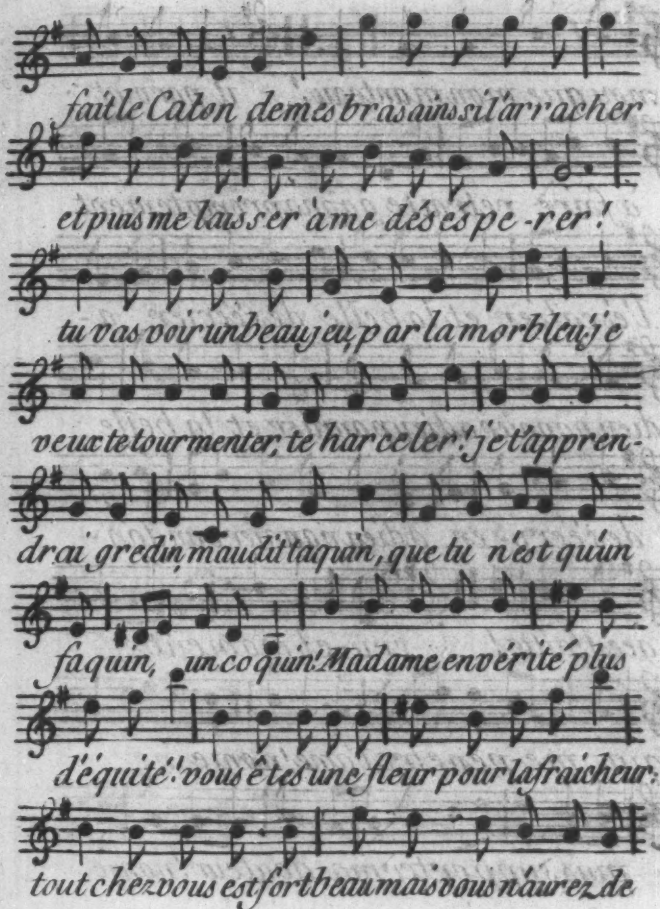 fait le Caton de mes bras ainssi l'arracher
et puis me laisser àme déséspe-rer!
tu vas voir un beau jeu, par la morbleu! je
veux te tourmenter, te harceler! je t'appren-
drai gredin, maudit taquin, que tu n'est qu'un
faquin, un coquin! Madame en vérité plus
d'équité! vous êtes une fleur pour la fraicheur:
tout chez vous est fort beau mais vous n'aurez de